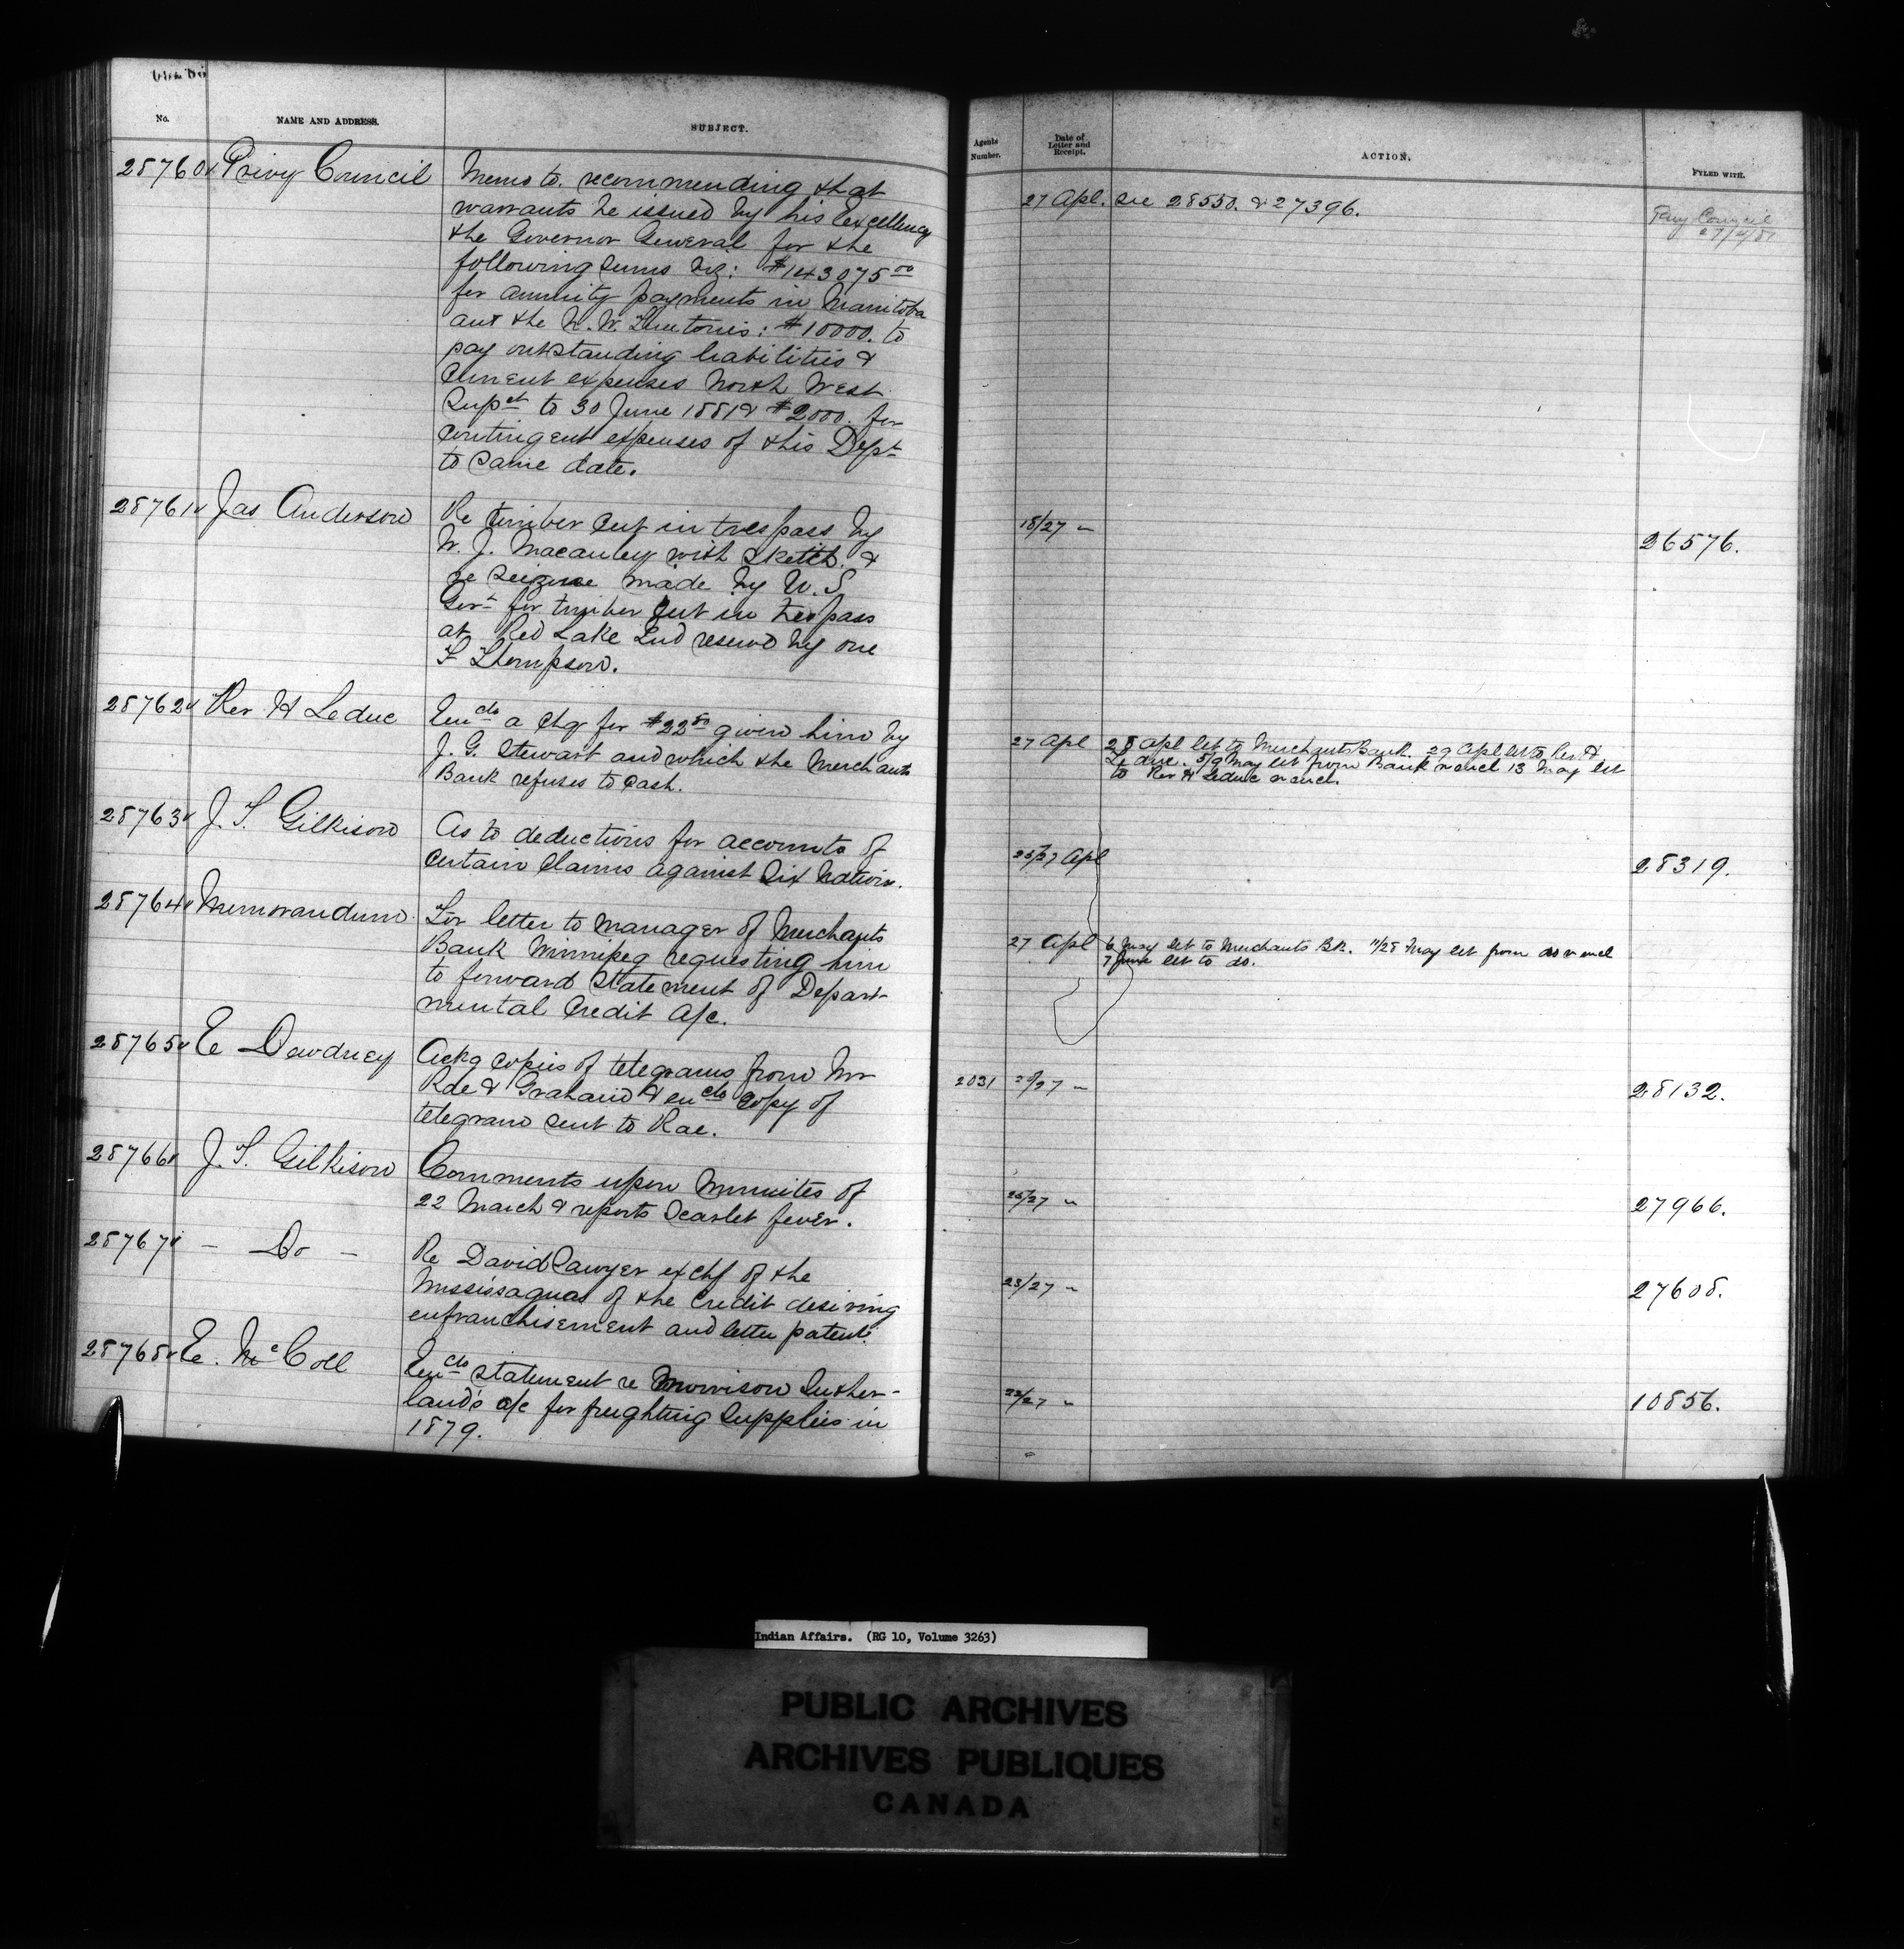 No.
NAME AND ADDRESS.
SUBJECT.
28760 Privy Council
Memo to. recommending that
warrants be issued by his Excellency
the Governor General for the
following sums viz: $143075 00
for annuity payments in Manitoba
and the N. W. Territories: $10000. to
pay outstanding liabilities &
current expenses North West
Supt to 30 June 1881 & $2000. for
contingent expenses of this Dept
to same date.
28761 Jas Anderson
Re timber cut in trespass by
W. J. Macauley with sketch. &
re seizure made by U. S
Govt for timber cut in trespass
at Red Lake Ind reserve by one
F Thompson.
28762 Rev H Leduc
Encls a chq for $22 50 given him by
J. G. Stewart and which the Merchants
Bank refuses to cash.
28763 J. T. Gilkison
As to deductions for accounts of
certain claims against Six Nations.
28764 Memorandum
For letter to manager of Merchants
Bank Winnipeg requesting him
to forward statement of Depart-
mental Credit A/c.
28765 E Dewdney
Ackg copies of telegrams from Mr
Rae & Graham & encls copy of
telegram sent to Rae.
28766 J. T. Gilkison
Comments upon Minutes of
22 March & reports Scarlet fever.
28767 - Do -
Re David Sawyer ex chf of the
Mississaguas of the Credit desiring
enfranchisement and letters patent.
28768 E. McColl
Encls statement re Morrison Suther-
land's a/c for freighting supplies in
1879.
Agents
Number.
Date of
Letter and
Receipt.
ACTION.
FYLED WITH.
27 Apl. see 28550. & 27396.
Privy Council
27/4/81
18/27 "
26576.
27 Apl 28 Apl let to Merchants Bank. 29 Apl let to Rev. H
Leduc. 5/9 May let from Bank n encl 13 May let
to Rev H Leduc n encl.
25/27 Apl
28319.
27 Apl 6 May let to Merchants Bk. 11/28 May let from do n encl
7 June let to do.
2031
/27 "
28132.
25/27 "
27966.
23/27 "
27608.
22/27 "
10856.
Indian Affairs. (RG 10, Volume 3263)
PUBLIC ARCHIVES
ARCHIVES PUBLIQUES
CANADA